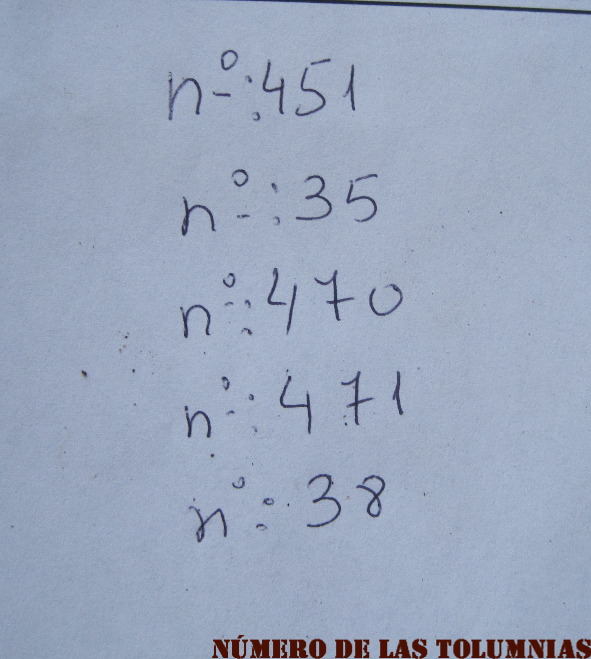 nº:451
nº:35
nº:470
nº:471
nº:38
NÚMERO DE LAS TOLUMNIAS